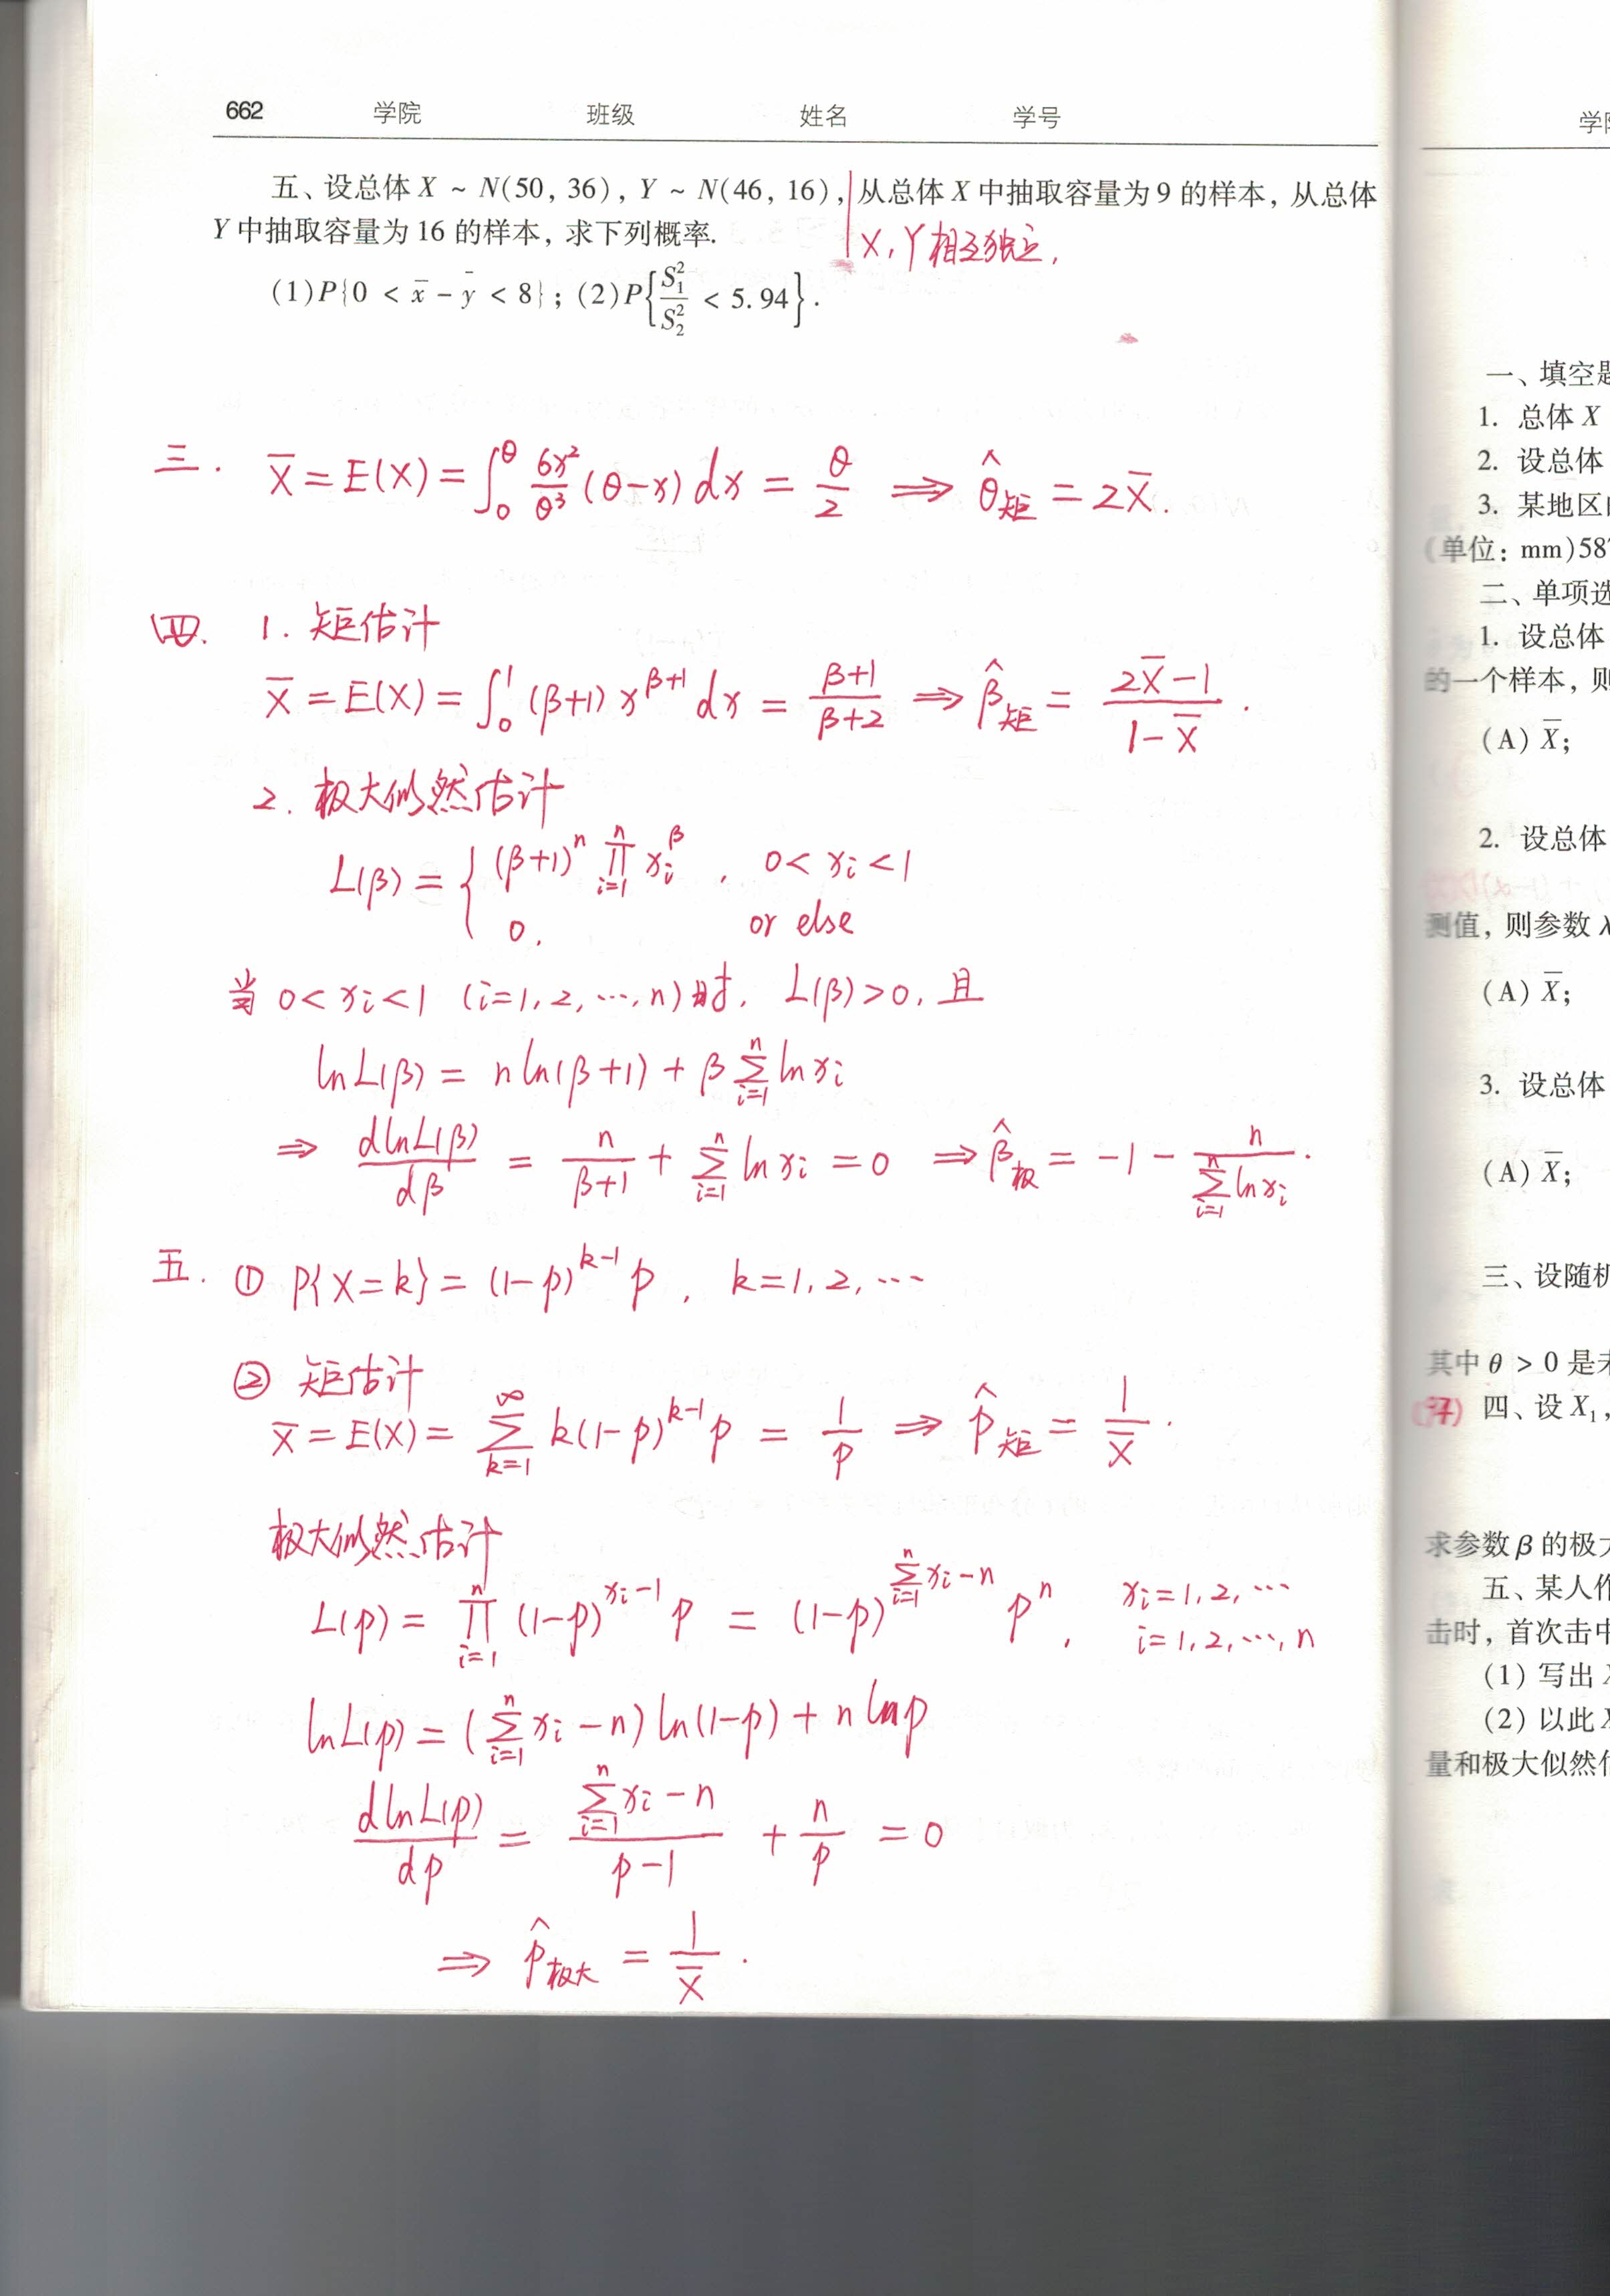 662 学院 班级 姓名 学号
五、设总体 X ~ N(50, 36), Y ~ N(46, 16), 从总体 X 中抽取容量为 9 的样本, 从总体
Y 中抽取容量为 16 的样本, 求下列概率.
X, Y 相互独立.
(1) P{0 < x̄ - ȳ < 8}; (2) P{S₁²/S₂² < 5.94}.
三. X̄ = E(X) = ∫₀^θ 6x²/θ³ (θ-x) dx = θ/2 ⇒ θ̂矩 = 2X̄.
四. 1. 矩估计
X̄ = E(X) = ∫₀¹ (β+1) x^(β+1) dx = (β+1)/(β+2) ⇒ β̂矩 = (2X̄-1)/(1-X̄).
2. 极大似然估计
L(β) = { (β+1)ⁿ ∏_{i=1}^n xᵢ^β, 0 < xᵢ < 1
0, or else
当 0 < xᵢ < 1 (i=1, 2, ⋯, n) 时, L(β) > 0, 且
lnL(β) = n ln(β+1) + β ∑_{i=1}^n ln xᵢ
⇒ dlnL(β)/dβ = n/(β+1) + ∑_{i=1}^n ln xᵢ = 0 ⇒ β̂极 = -1 - n/(∑_{i=1}^n ln xᵢ).
五. ① P{X=k} = (1-p)^(k-1) p, k=1, 2, ⋯
② 矩估计
X̄ = E(X) = ∑_{k=1}^∞ k(1-p)^(k-1) p = 1/p ⇒ p̂矩 = 1/X̄.
极大似然估计
L(p) = ∏_{i=1}^n (1-p)^(xᵢ-1) p = (1-p)^(∑_{i=1}^n xᵢ-n) pⁿ, xᵢ=1, 2, ⋯
i=1, 2, ⋯, n
lnL(p) = (∑_{i=1}^n xᵢ-n) ln(1-p) + n lnp
dlnL(p)/dp = (∑_{i=1}^n xᵢ-n)/(p-1) + n/p = 0
⇒ p̂极大 = 1/X̄.
学
一、填空
1. 总体 X
2. 设总体
3. 某地区
(单位: mm)58
二、单项选
1. 设总体
的一个样本, 则
(A) X̄;
2. 设总体
测值, 则参数 λ
(A) X̄;
3. 设总体
(A) X̄;
三、设随机
其中 θ > 0 是未
四、设 X₁,
求参数 β 的极大
五、某人作
击时, 首次击中
(1) 写出
(2) 以此
量和极大似然估